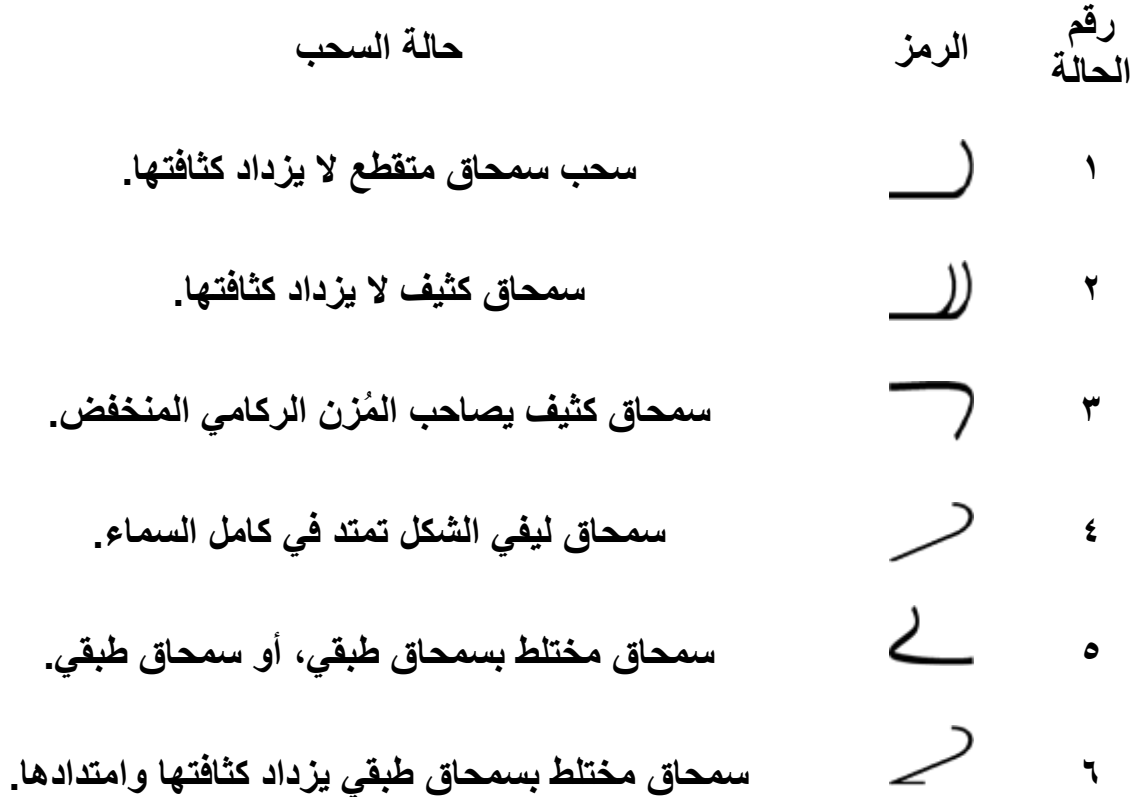 رقم الحالة الرمز حالة السحب
١ سحب سمحاق متقطع لا يزداد كثافتها.
٢ سمحاق كثيف لا يزداد كثافتها.
٣ سمحاق كثيف يصاحب المُزن الركامي المنخفض.
٤ سمحاق ليفي الشكل تمتد في كامل السماء.
٥ سمحاق مختلط بسمحاق طبقي، أو سمحاق طبقي.
٦ سمحاق مختلط بسمحاق طبقي يزداد كثافتها وامتدادها.